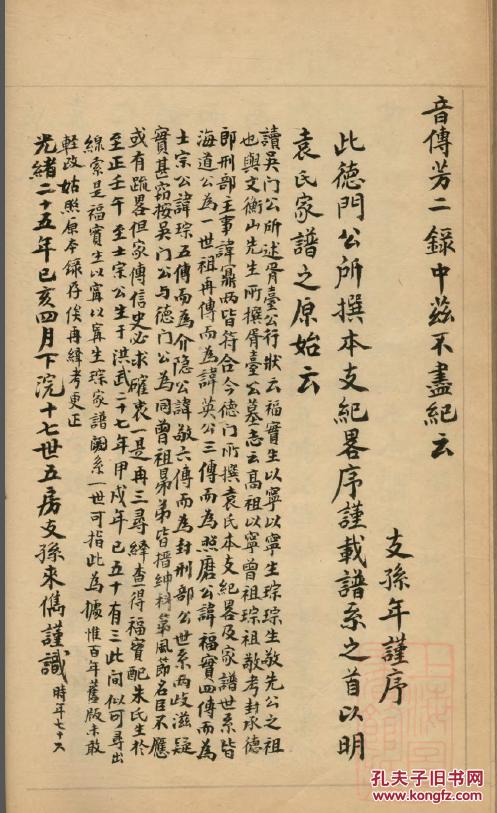 音傳芳二錄中茲不盡紀云
支孫年謹序
此德門公所撰本支紀畧序謹載譜系之首以明
袁氏家譜之原始云
讀吳門公所述胥臺公行狀云福實生以寧以寧生琮琮生敬先公之祖
也與文衡山先生所撰胥臺公墓志云高祖以寧曾祖琮祖敬考封承德
郎刑部主事諱鼐兩皆符合今德門所撰袁氏本支紀畧及家譜世系皆
海道公為一世祖再傳而為諱英公三傳而為照磨公諱福實四傳而為
士宗公諱琮五傳而為介隐公諱敬六傳而為封刑部公世系兩歧滋疑
實甚窃按吳門公与德門公為同曾祖弟皆搢紳科第風節名臣不應
或有疏畧但家傳信史必求確衷一是再三尋繹查得福實配朱氏生於
至正壬午至士宗公生于洪武二十七年甲戌年已五十有三此間似可尋出
線索是福實生以寗以寗生琮家譜阙系一世可指此為據惟百年舊版未敢
輕改姑照原本錄存俟再緝考更正
光緒二十五年己亥四月下浣十七世五房支孫來儁謹識 時年七十六
孔夫子旧书网
www.kongfz.com